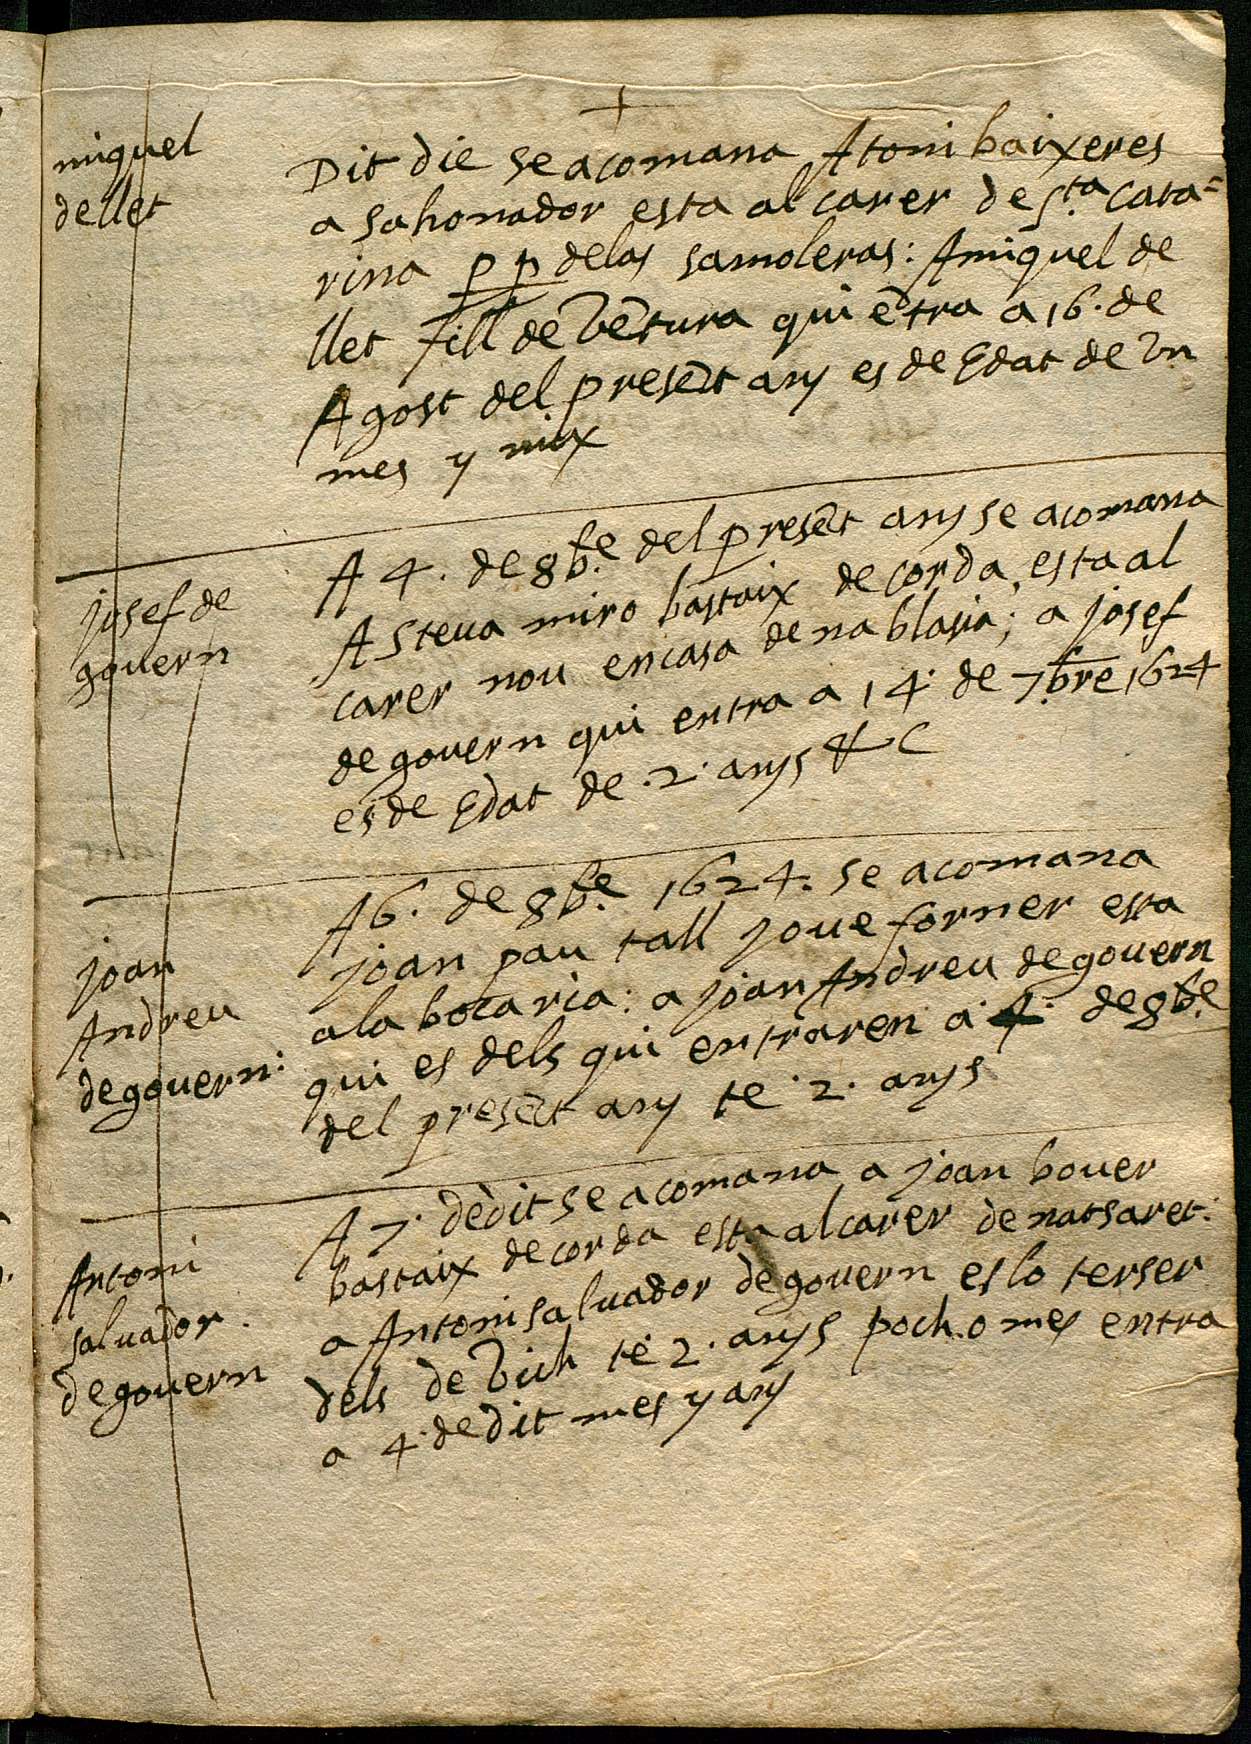 +
miquel
dellet
Dit die se acomana A toni baixeres
a sahonador esta al carer de Sta. Cata=
rina p p delas samoleras: A miquel de
llet fill de Vētura qui ētra a 16. de
Agost del presēt any es de Edat de Vn
mes y mix
josef de
govern
A 4. de 8bre. del presēt any se acomana
A Steva miro bastaix de corda esta al
carer nou en casa de na blasia; a josef
de govern qui entra a 14. de 7bre 1624
es de Edat de .2. anys & C
joan
Andreu
de govern.
A 6. de 8bre. 1624. se acomana
joan pau tall jove forner esta
a la bocaria: a joan Andreu de govern
qui es dels qui entraren a 4. de 8bre
del presēt any te .2. anys
Antoni
salvador.
de govern
A 7. de dit se acomana a joan bover
bastaix de corda esta al carer de natsaret:
a Antoni salvador de govern es lo terser
dels de Vich te 2. anys poch. o mes entra
a 4. de dit mes y any